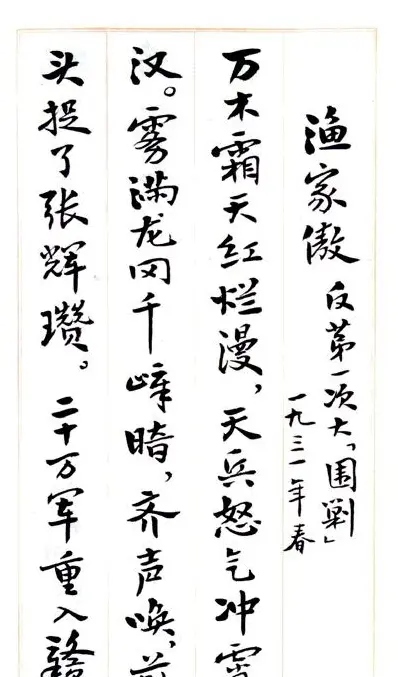 渔家傲 反第一次大「围剿」
一九三一年春
万木霜天红烂漫，天兵怒气冲霄
汉。雾满龙冈千嶂暗，齐声唤，
头捉了张辉瓒。二十万军重入赣